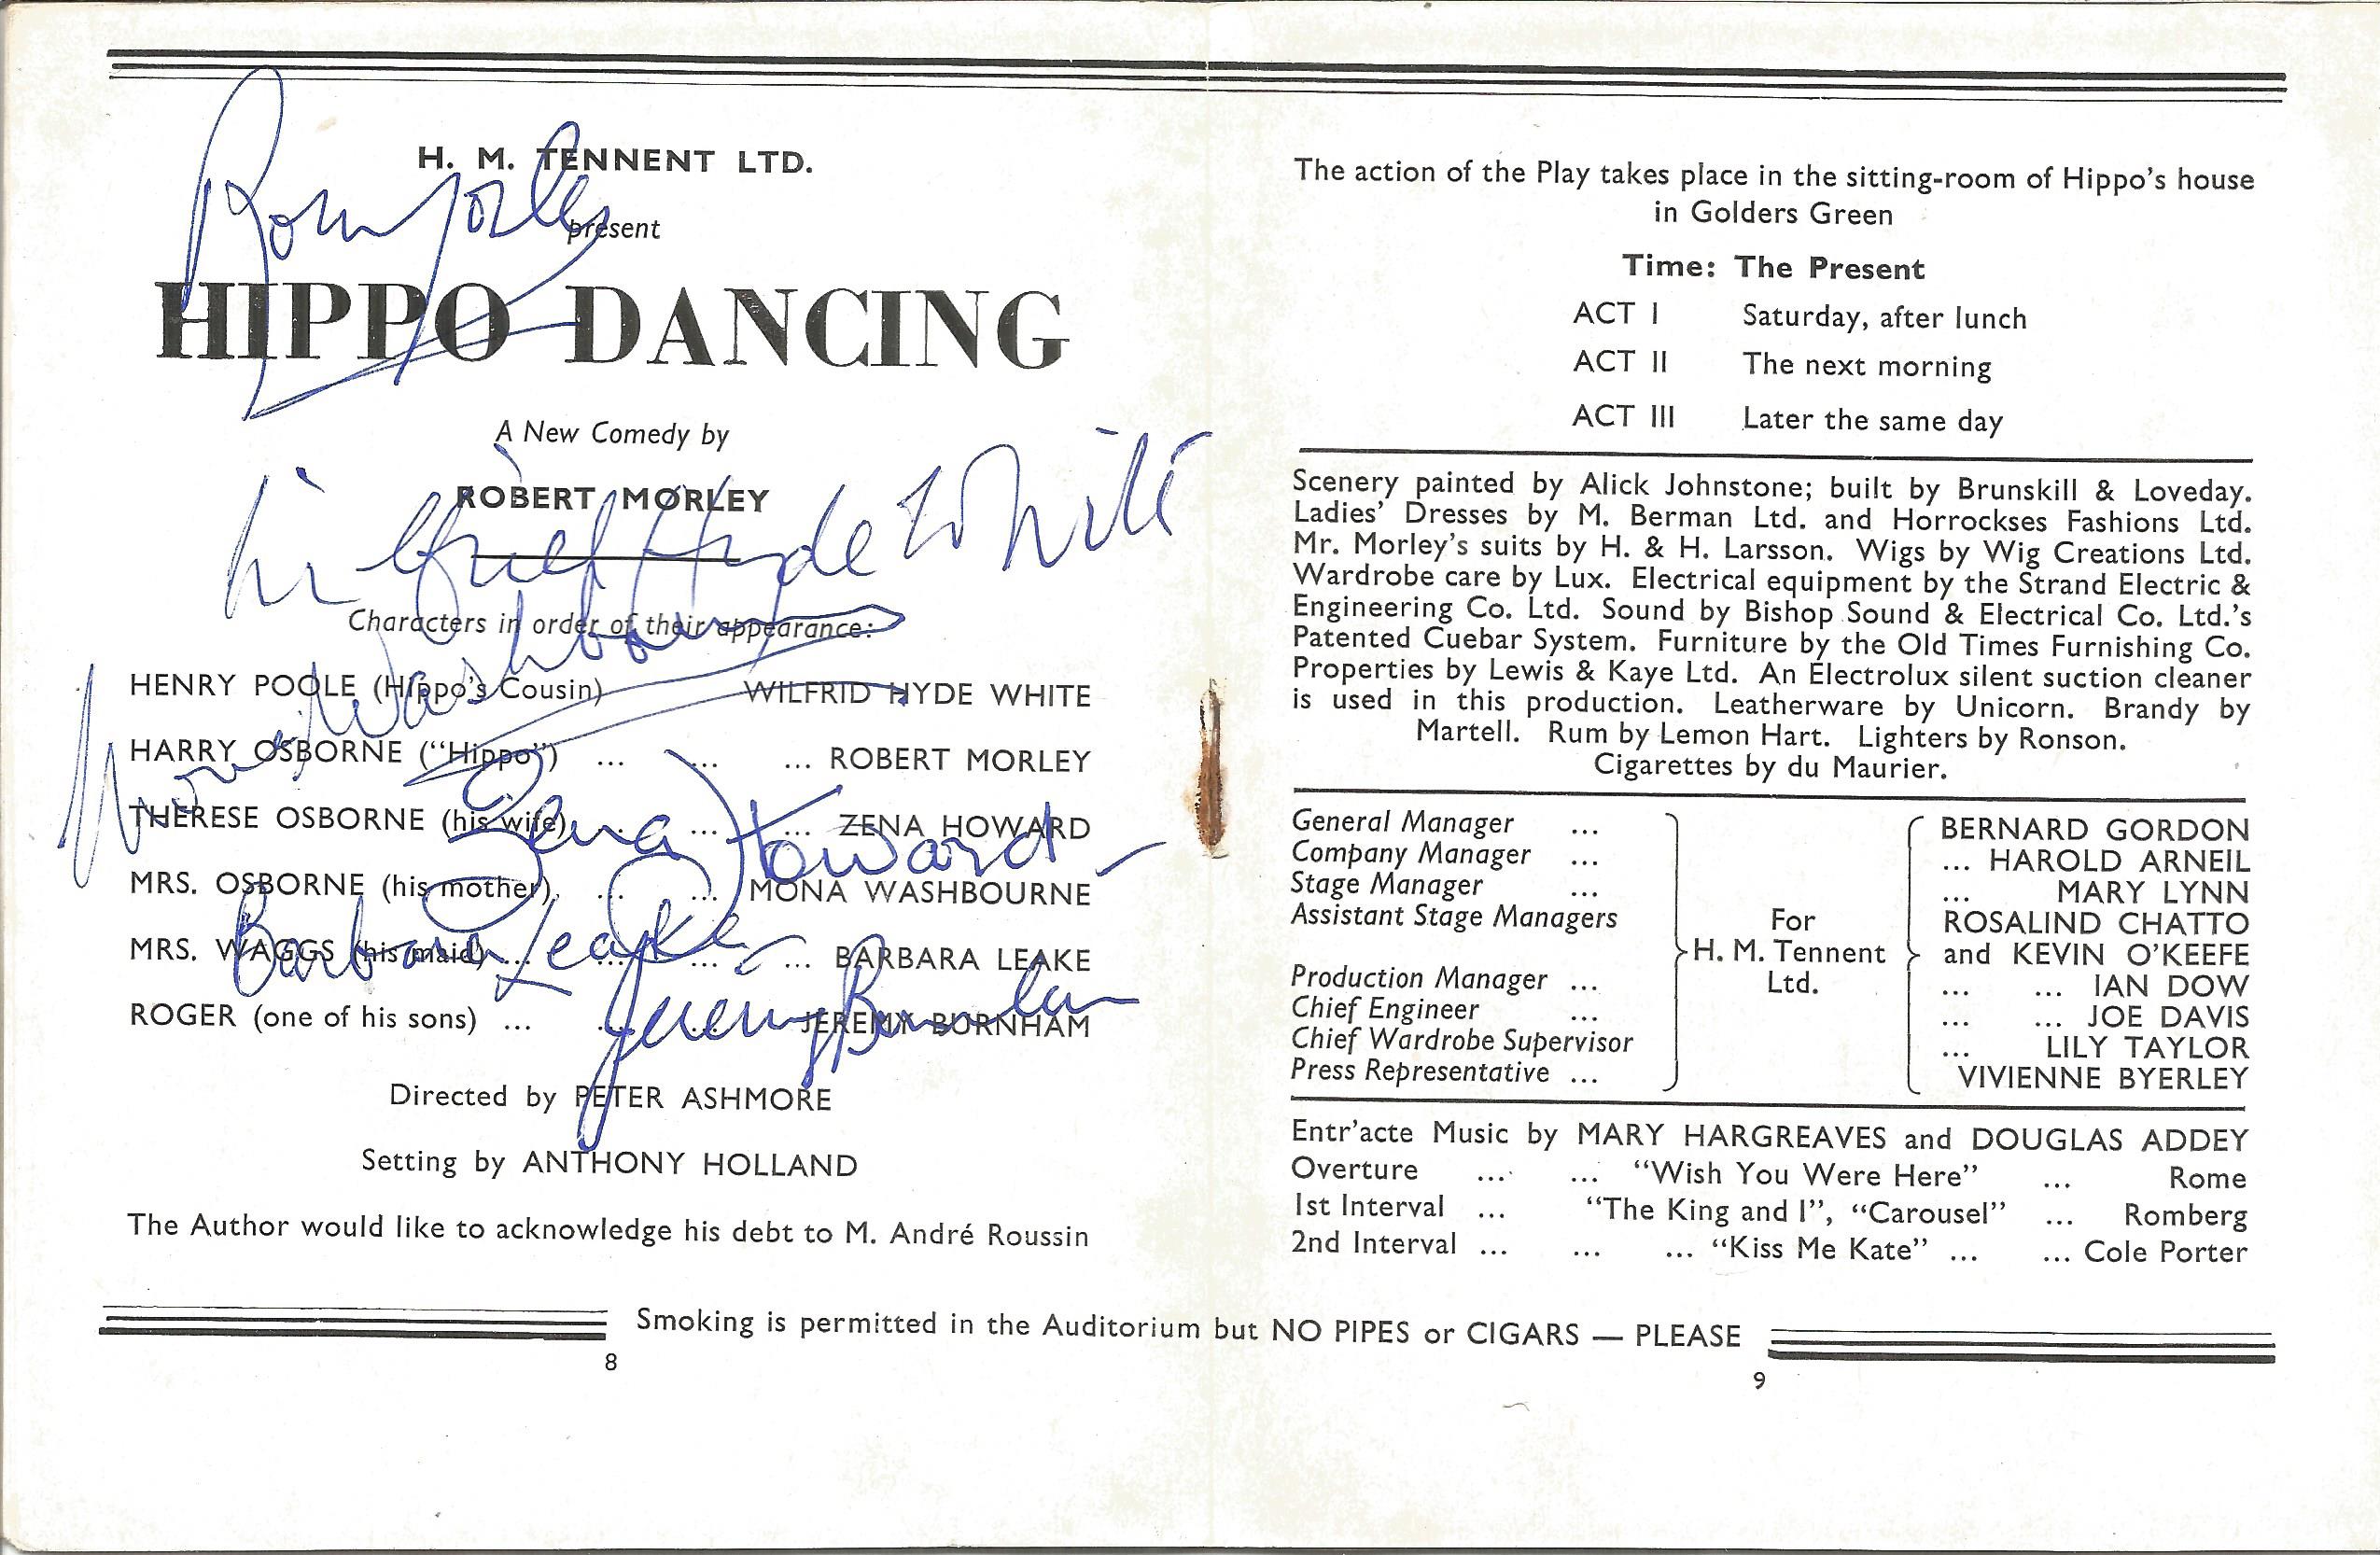 H. M. TENNENT LTD.
present
HIPPO DANCING
A New Comedy by
ROBERT MORLEY
Robert Morley
Wilfrid Hyde White
Characters in order of their appearance:
Mona Washbourne
HENRY POOLE (Hippo's Cousin) WILFRID HYDE WHITE
HARRY OSBORNE ("Hippo") ... ... ... ROBERT MORLEY
THERESE OSBORNE (his wife) ... ... ... ZENA HOWARD
Zena Howard
MRS. OSBORNE (his mother) ... ... MONA WASHBOURNE
Barbara Leake
MRS. WAGGS (his maid) ... ... ... ... BARBARA LEAKE
ROGER (one of his sons) ... ... ... JEREMY BORNHAM
Jeremy Burnham
Directed by PETER ASHMORE
Setting by ANTHONY HOLLAND
The Author would like to acknowledge his debt to M. André Roussin
The action of the Play takes place in the sitting-room of Hippo's house
in Golders Green
Time: The Present
ACT I Saturday, after lunch
ACT II The next morning
ACT III Later the same day
Scenery painted by Alick Johnstone; built by Brunskill & Loveday.
Ladies' Dresses by M. Berman Ltd. and Horrockses Fashions Ltd.
Mr. Morley's suits by H. & H. Larsson. Wigs by Wig Creations Ltd.
Wardrobe care by Lux. Electrical equipment by the Strand Electric &
Engineering Co. Ltd. Sound by Bishop Sound & Electrical Co. Ltd.'s
Patented Cuebar System. Furniture by the Old Times Furnishing Co.
Properties by Lewis & Kaye Ltd. An Electrolux silent suction cleaner
is used in this production. Leatherware by Unicorn. Brandy by
Martell. Rum by Lemon Hart. Lighters by Ronson.
Cigarettes by du Maurier.
General Manager ... BERNARD GORDON
Company Manager ... ... HAROLD ARNEIL
Stage Manager ... ... MARY LYNN
Assistant Stage Managers For ROSALIND CHATTO
H. M. Tennent and KEVIN O'KEEFE
Production Manager ... Ltd. ... ... IAN DOW
Chief Engineer ... ... ... JOE DAVIS
Chief Wardrobe Supervisor ... LILY TAYLOR
Press Representative ... VIVIENNE BYERLEY
Entr'acte Music by MARY HARGREAVES and DOUGLAS ADDEY
Overture ... ... "Wish You Were Here" ... Rome
1st Interval ... "The King and I", "Carousel" ... Romberg
2nd Interval ... ... ... "Kiss Me Kate" ... ... Cole Porter
Smoking is permitted in the Auditorium but NO PIPES or CIGARS — PLEASE
8
9